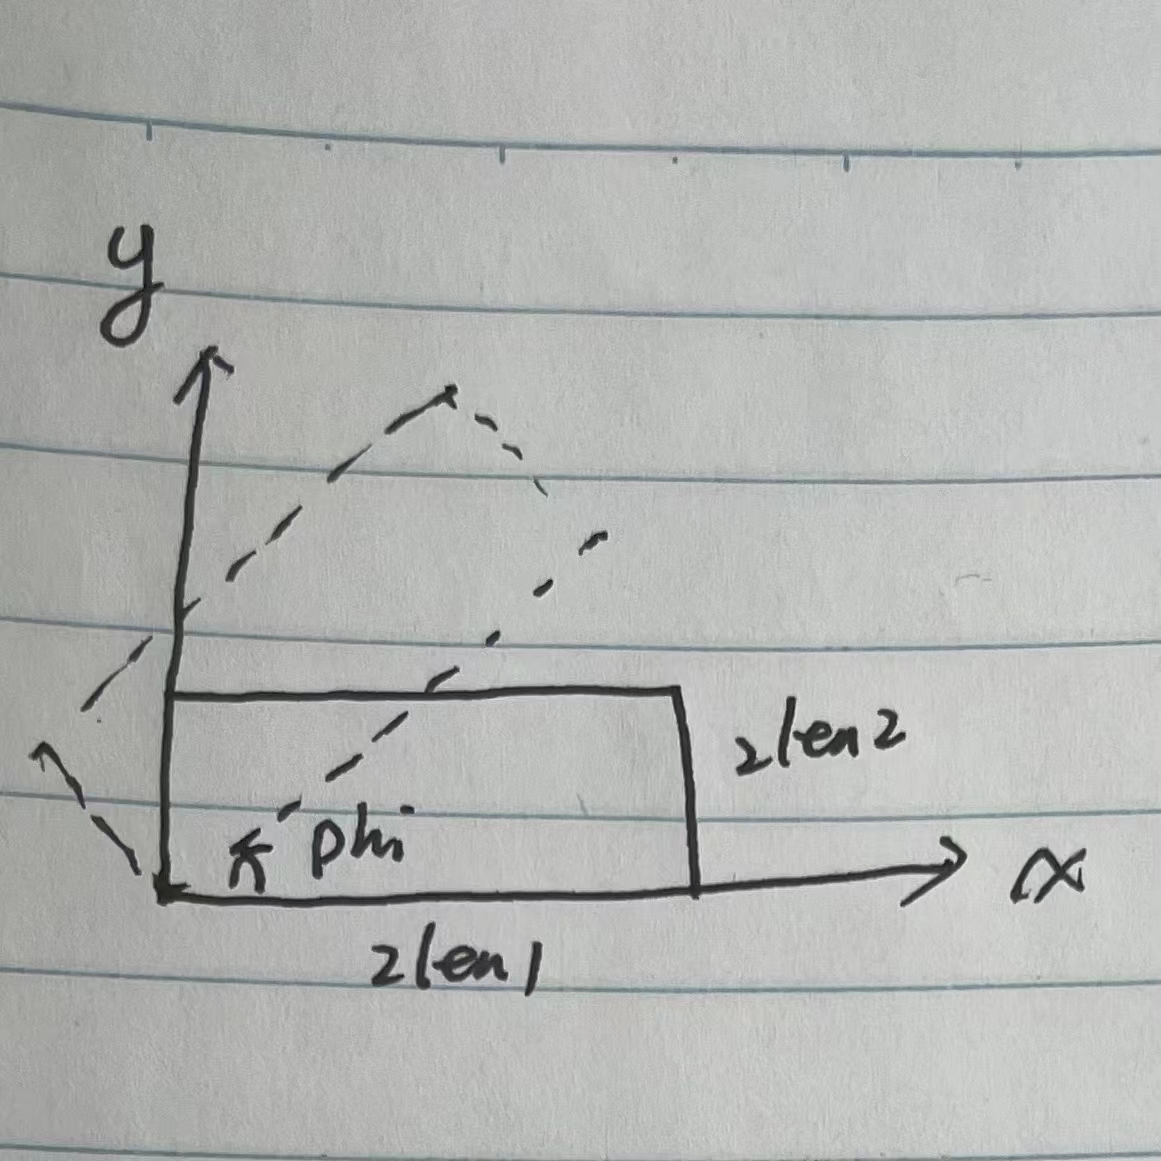 y
2len2
phi
x
2len1